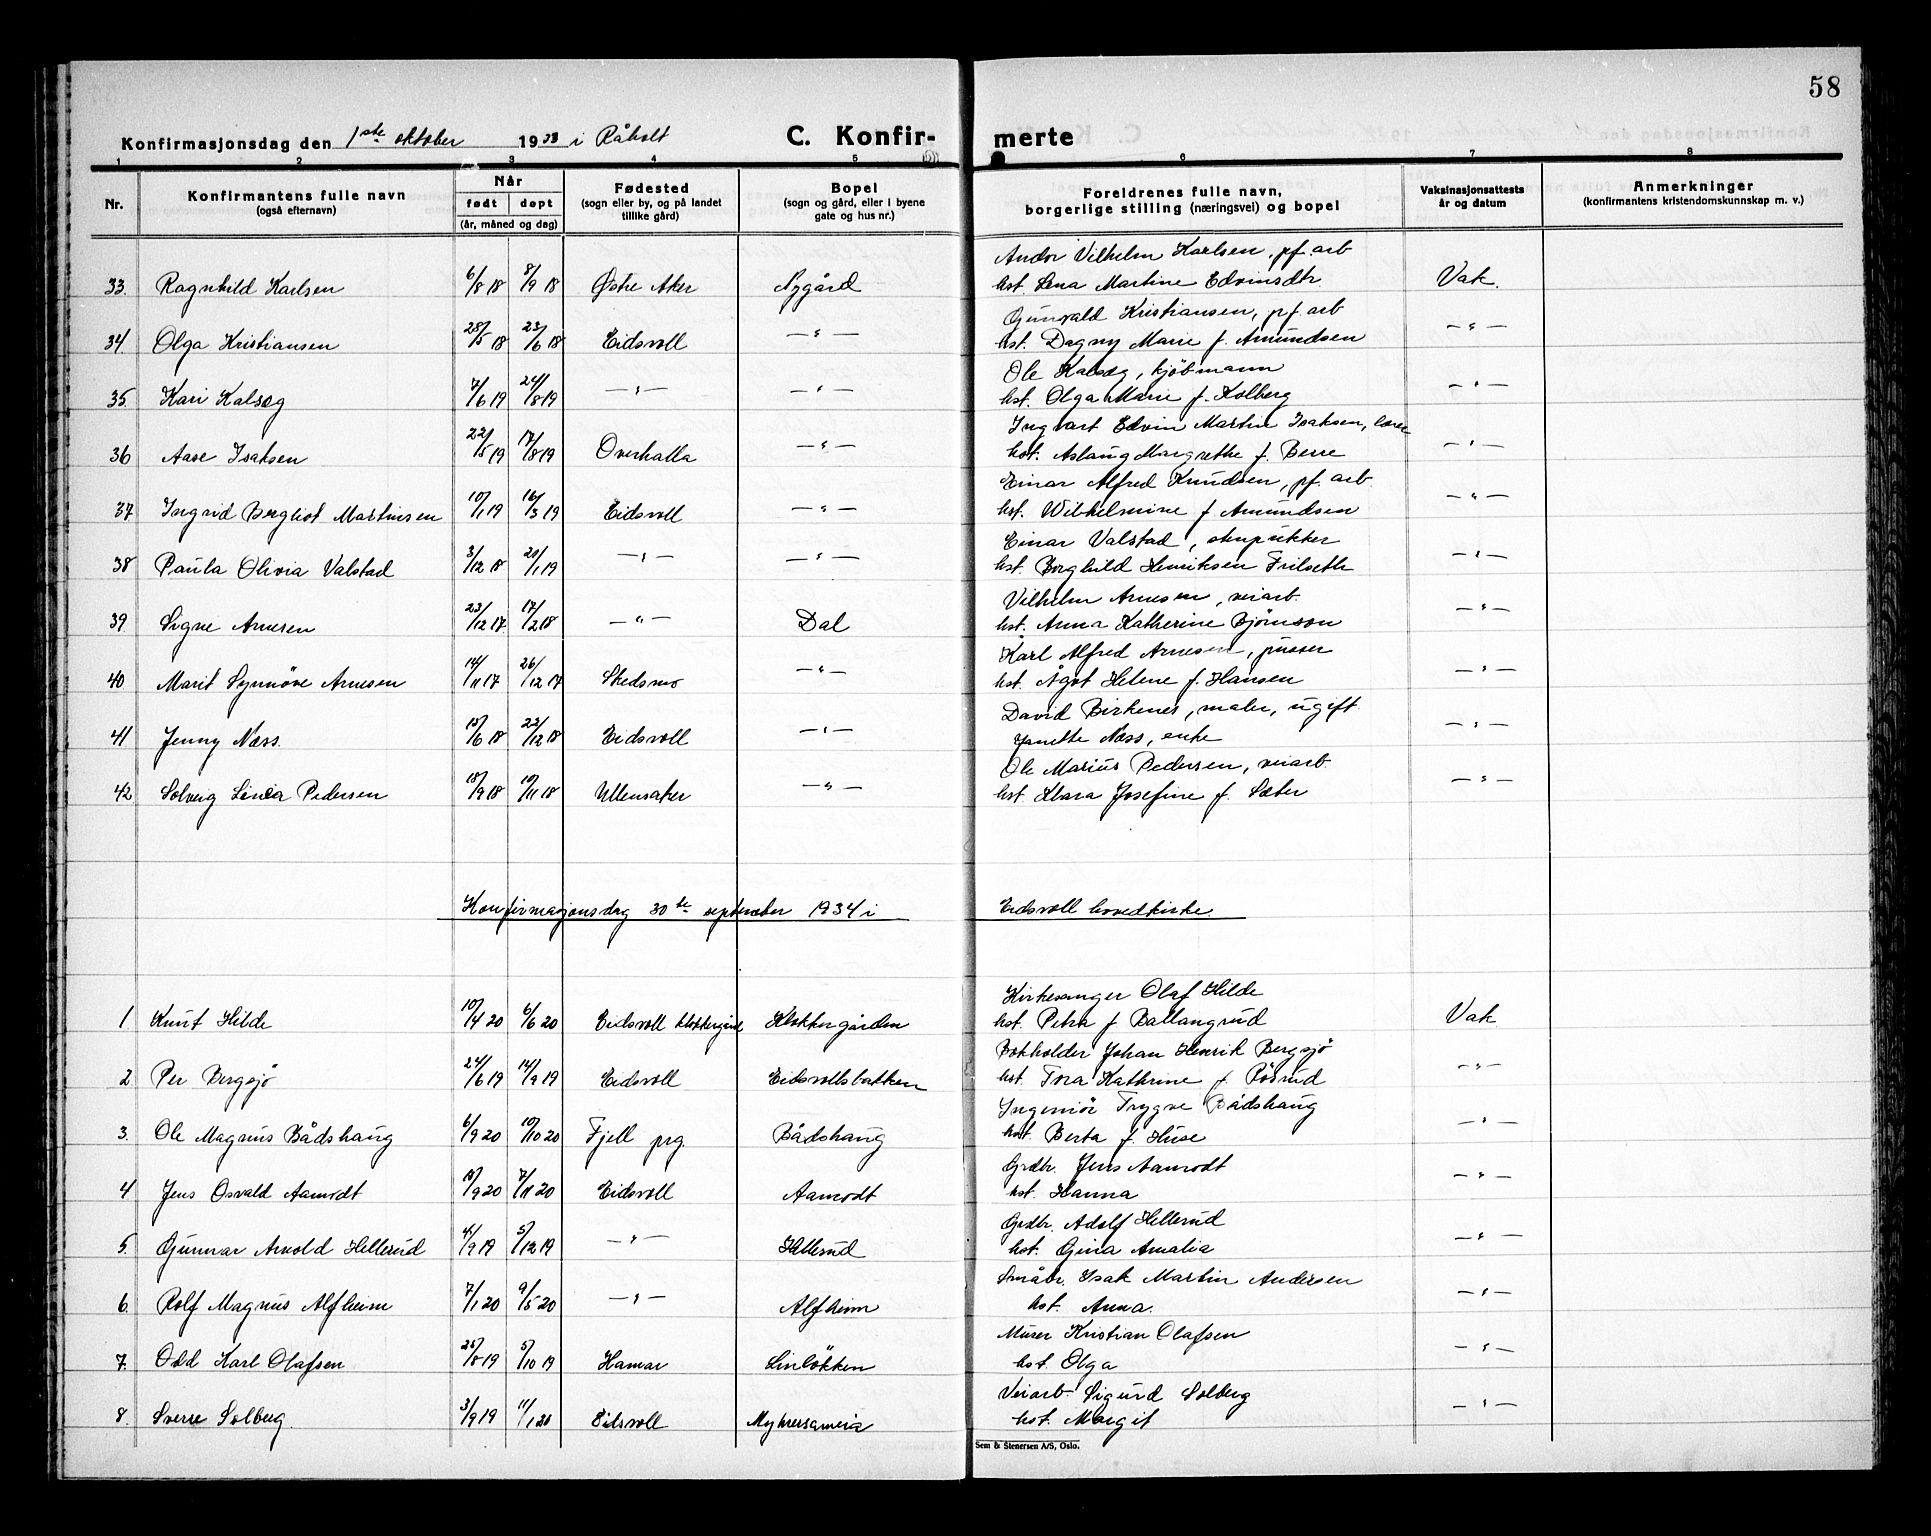 58
Konfirmasjonsdag den 1ste oktober 1933 i Råholt C. Konfir- merte
1 2 3 4 5 6 7 8
Nr. Konfirmantens fulle navn (også efternavn) Når født døpt (år, måned og dag) Fødested (sogn eller by, og på landet tillike gård) Bopel (sogn og gård, eller i byene gate og hus nr.) Foreldrenes fulle navn, borgerlige stilling (næringsvei) og bopel Vaksinasjonsattests år og datum Anmerkninger (konfirmantens kristendomskunnskap m. v.)
Andor Vilhelm Karlsen, pf. arb
33. Ragnhild Karlsen 6/8 18 8/9 18 Østre Aker Nygård hst. Lena Martine Edvinsdtr Vak.
Gunvald Kristiansen, pf. arb
34. Olga Kristiansen 28/5 18 23/6 18 Eidsvoll — " — hst. Dagny Marie f. Amundsen — " —
Ole Kalsæg, kjöbmann
35. Kari Kalsæg 7/6 19 24/8 19 — " — — " — hst. Olga Marie f. Kolberg — " —
Ingvart Edvin Martin Isaksen, lærer
36 Aase Isaksen 22/5 19 17/8 19 Overhalla — " — hst. Aslaug Margrethe f. Berre — " —
Einar Alfred Knudsen, pf. arb.
37 Ingrid Bergliot Martinsen 10/1 19 16/3 19 Eidsvoll — " — hst. Wilhelmine f. Amundsen — " —
Einar Valstad, stenpukker
38 Paula Olivia Valstad 3/12 18 20/1 19 — " — — " — hst. Borghild Henriksen Frilseth — " —
Vilhelm Arnesen, veiarb.
39. Signe Arnesen 23/12 17. 17/2 18 — " — Dal hst. Anna Katherine Bjørnson — " —
Karl Alfred Arnesen, pusser
40 Marit Synnöve Arnesen 14/11 17 26/12 17 Skedsmo — " — hst. Ågot Helene f. Hansen — " —
David Birkenes, maler, ugift.
41 Jenny Næss. 15/6 18 22/12 18 Eidsvoll — " — Janette Næss, enke — " —
Ole Marius Pedersen, veiarb.
42 Solveig Linea Pedersen 18/9 18 10/11 18 Ullensaker — " — hst. Klara Josefine f. Sæter — " —
Konfirmasjonsdag 30te september 1934 i Eidsvoll hovedkirke.
Kirkesanger Olaf Hilde
1 Knut Hilde 10/4 20 6/6 20 Eidsvoll klokkergård Klokkergården hst. Petra f. Ballangrud Vak
Bokholder Johan Henrik Bergsjö
2 Per Bergsjö 24/6 19 14/9 19 Eidsvoll Eidsvollsbakken hst. Tora Kathrine f. Pösrud — " —
Ingeniör Trygve Bådshaug
3. Ole Magnus Bådshaug 6/9 20 10/10 20 Fjell prg. Bådshaug hst. Berta f. Huse — " —
Grdbr. Jens Aamodt
4 Jens Osvald Aamodt /9 20 7/11 20 Eidsvoll Aamodt hst. Hanna — " —
Grdbr. Adolf Hellerud
5. Gunnar Arnold Hellerud 4/9 19 5/12 19 — " — Hellerud hst. Gina Amalia — " —
Småbr. Isak Martin Andersen
6. Rolf Magnus Alfheim 7/1 20 9/5 20 — " — Alfheim hst. Anna. — " —
Murer Kristian Olafsen
7. Odd Karl Olafsen 25/8 19 5/10 19 Hamar Linlökken hst. Olga — " —
Veiarb. Sigurd Solberg
8. Sverre Solberg. 3/9 19 11/1 20 Eidsvoll hst. Margit — " —
Sem & Stenersen A/S, Oslo.